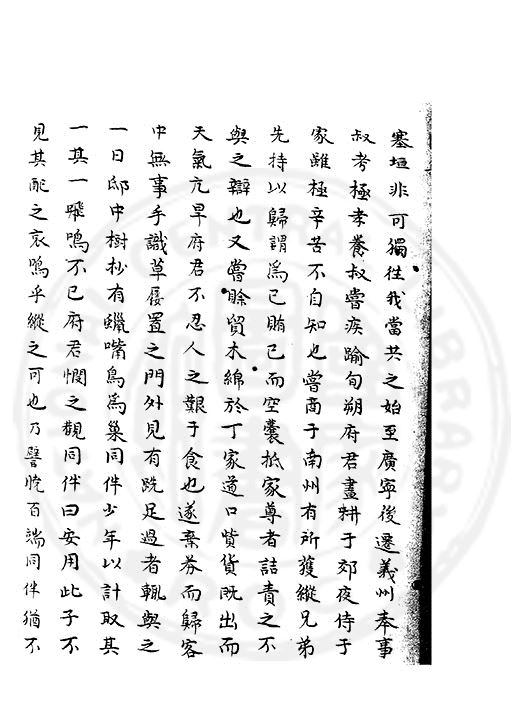 塞垣非可獨往我當共之始至廣寧後遷義州奉事
叔考極孝養叔嘗疾踰旬朔府君晝耕于郊夜侍于
家雖極辛苦不自知也嘗商于南州有所獲縱兄弟
先持以歸謂爲已賄已而空囊抵家尊者詰責之不
與之辯也又嘗賒貿木綿於丁家道口貲貨既出而
天氣亢旱府君不忍人之艱于食也遂棄券而歸客
中無事手識草屨置之門外見有跣足過者輒與之
一日邸中樹杪有蠟嘴鳥爲巢同伴少年以計取其
一其一飛鳴不已府君憫之觀同伴曰安用此子不
見其配之哀鳴乎縱之可也乃譬百端同伴猶不